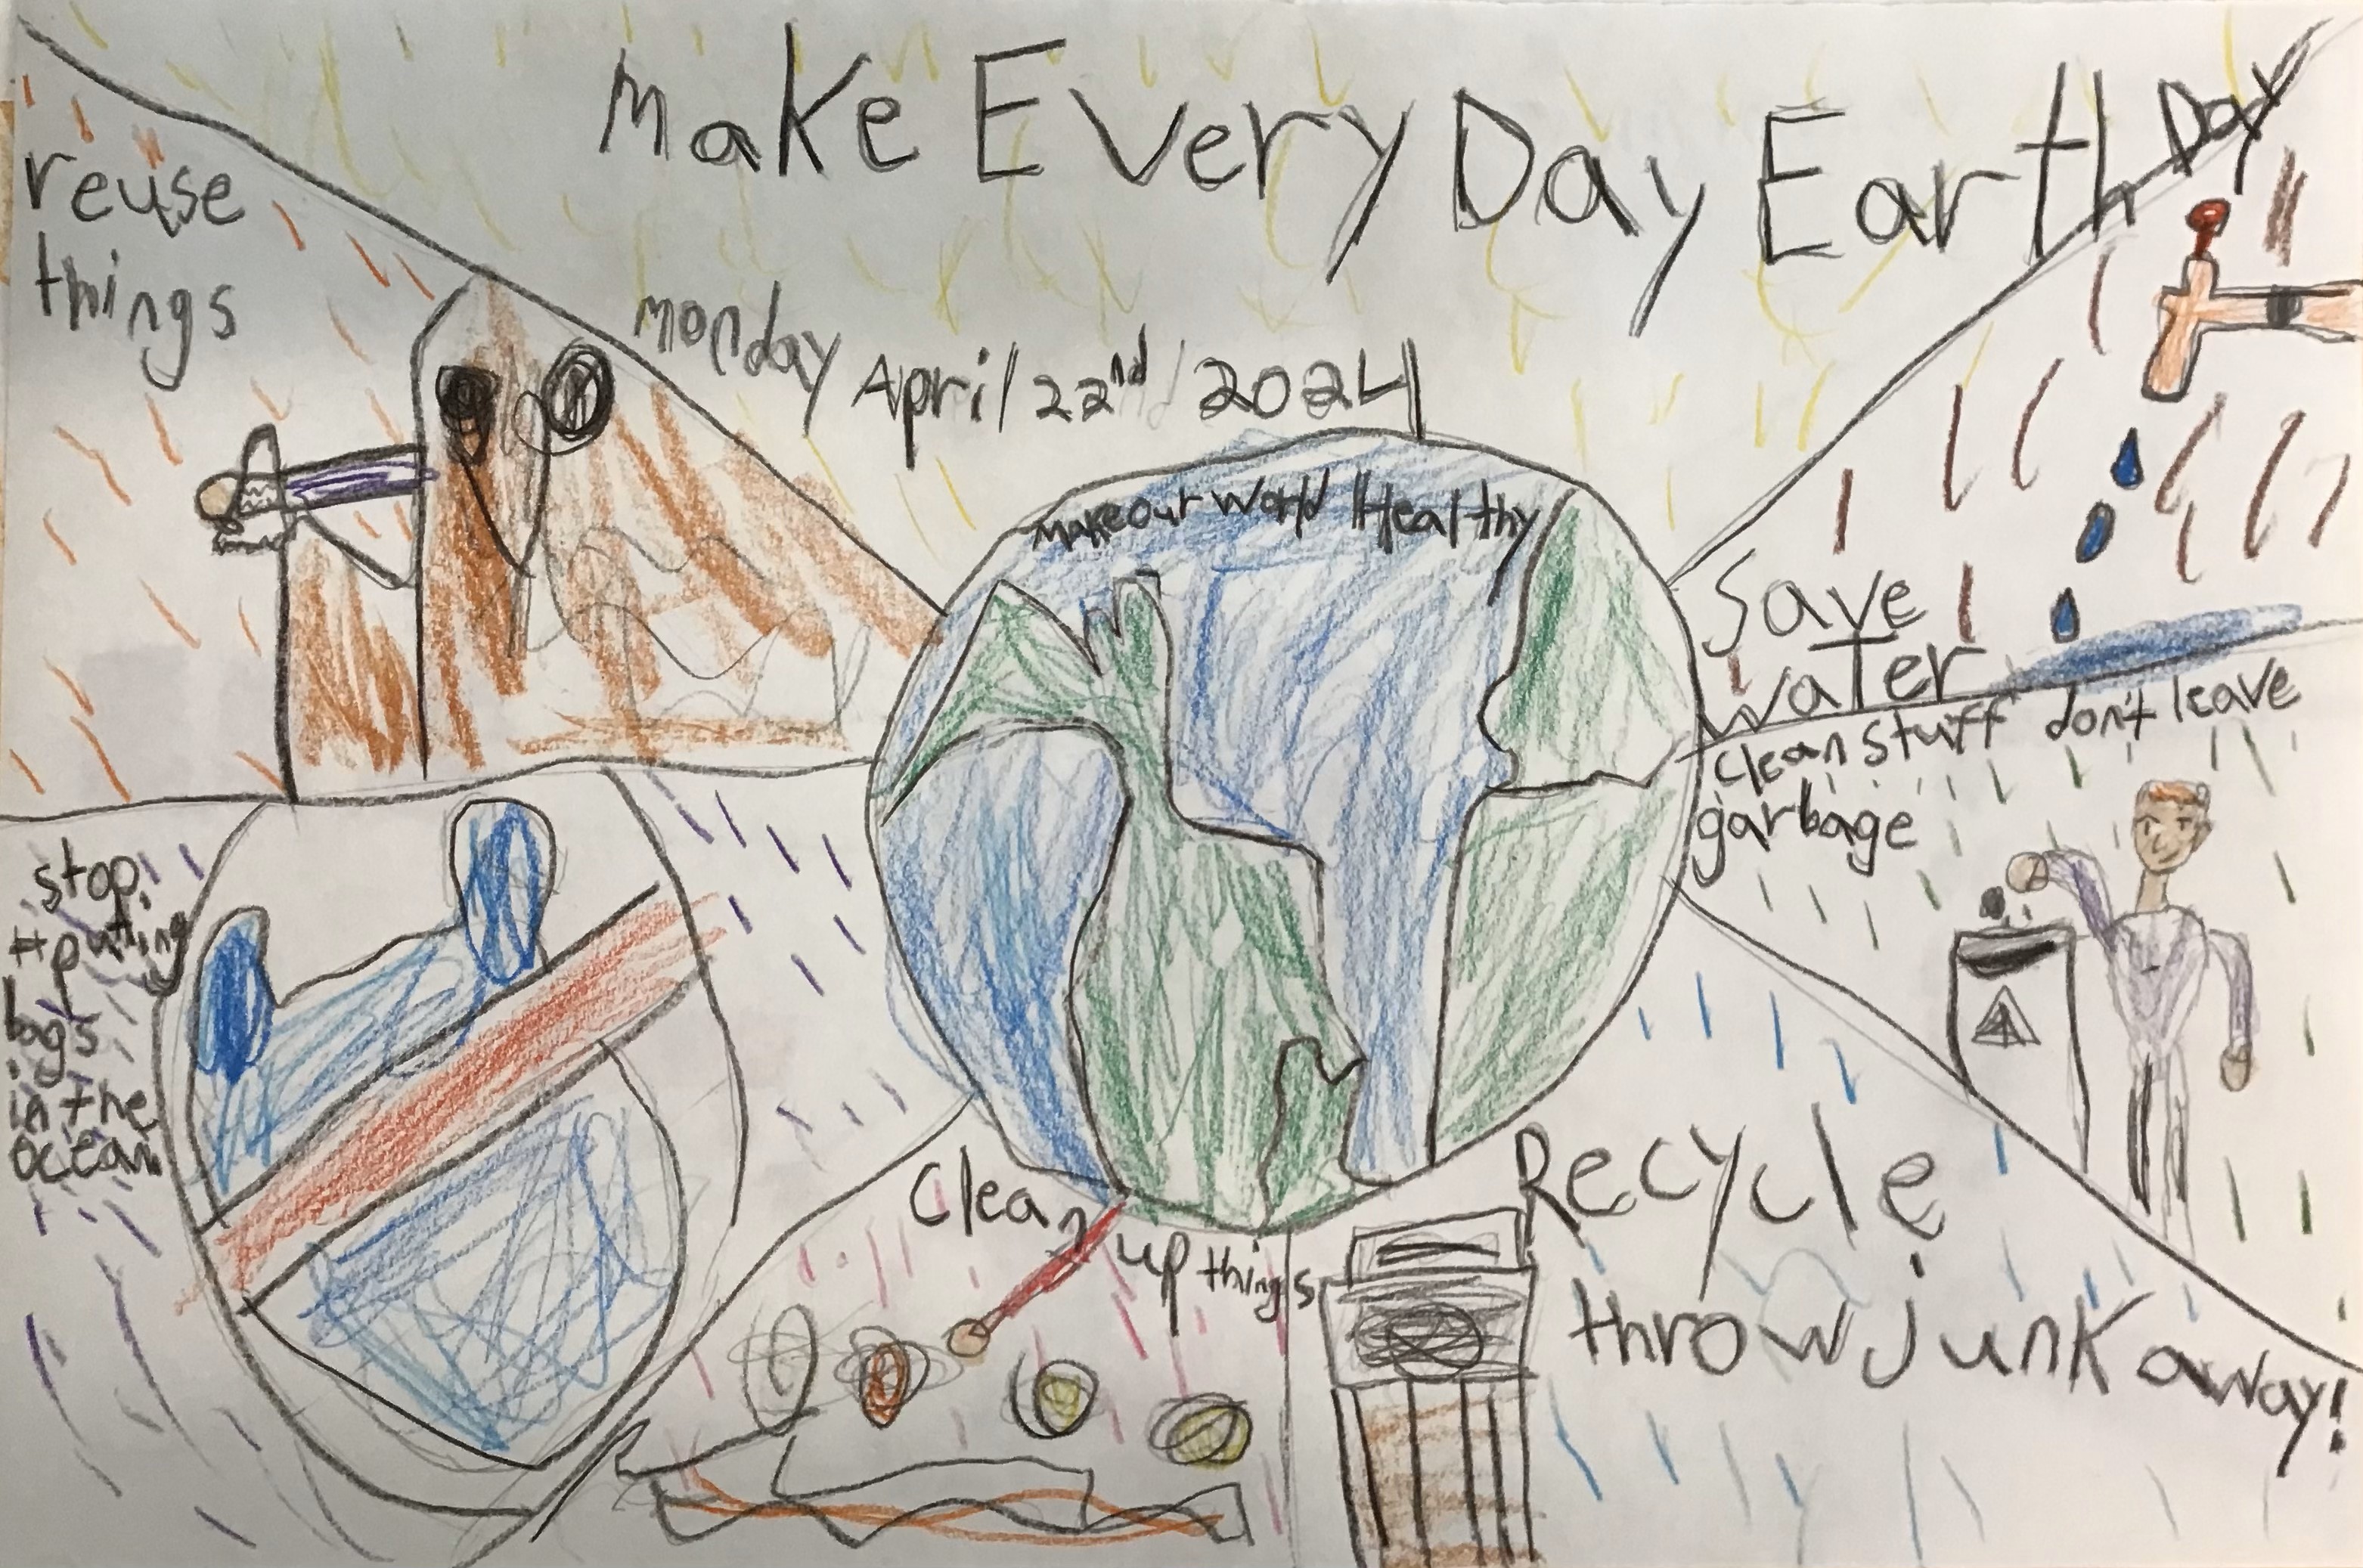 Make Every Day Earth Day
monday April 22nd 2024
reuse
things
make our world Healthy
Save
water
clean stuff don't leave
garbage
stop
puting
bags
in the
ocean
Clean up things
Recycle
throw junk away!